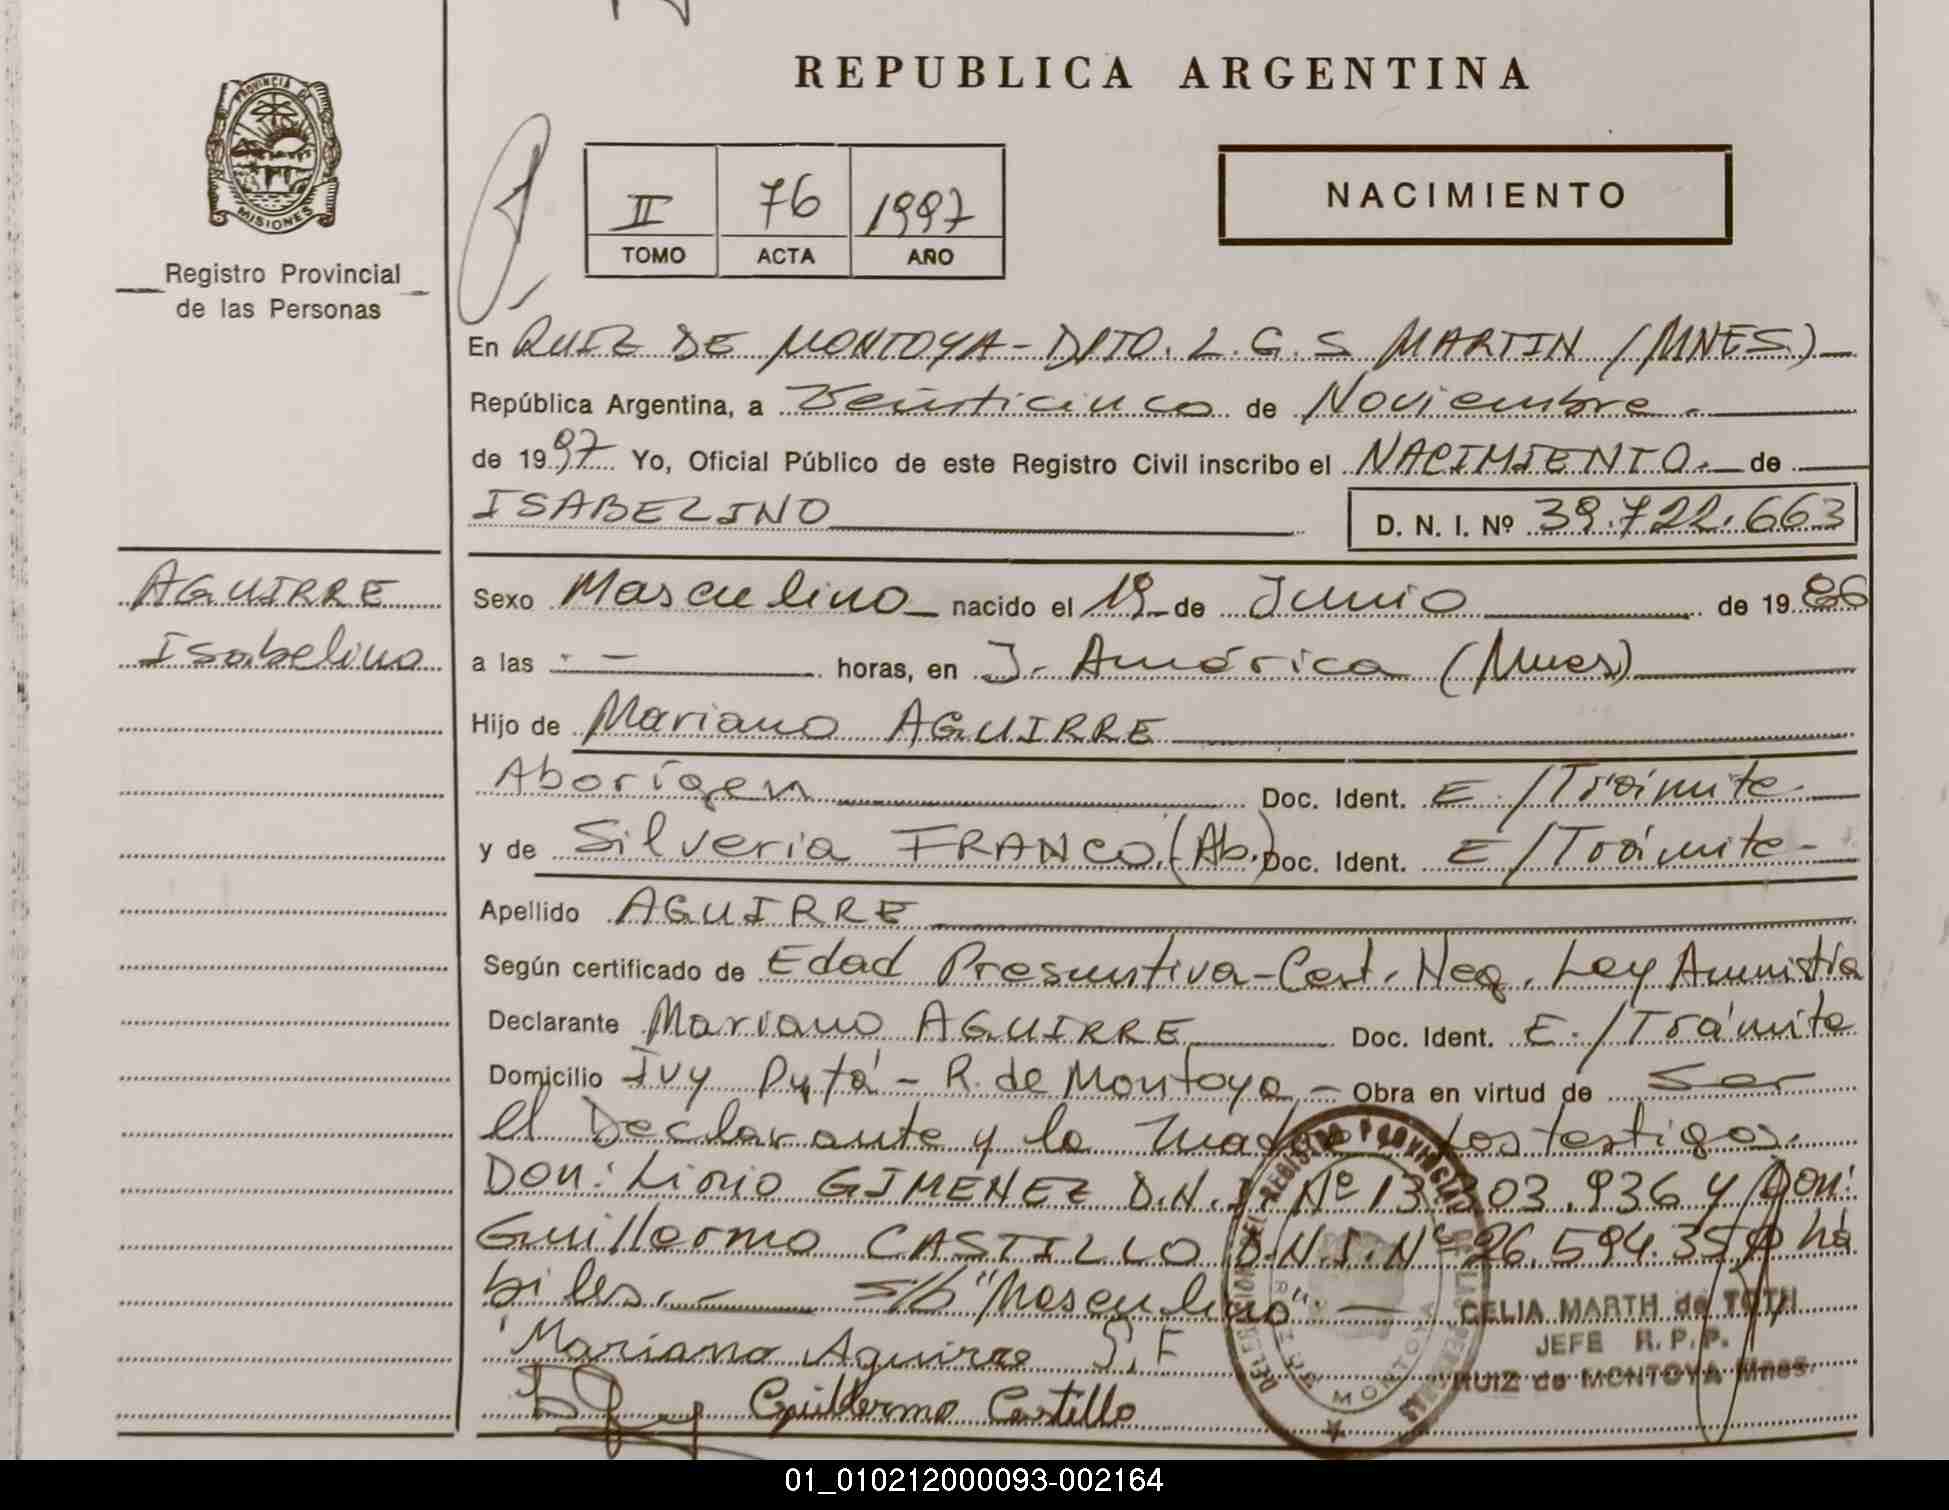 REPUBLICA ARGENTINA
PROVINCIA DE
MISIONES
Registro Provincial
de las Personas
II 76 1997
TOMO ACTA AÑO
NACIMIENTO
En RUIZ DE MONTOYA - DPTO. L. G. S MARTIN (MNES)
República Argentina, a Veinticinco de Noviembre.
de 1997 Yo, Oficial Público de este Registro Civil inscribo el NACIMIENTO. de
ISABELINO D. N. I. Nº 39.722.663
AGUIRRE
Isabelino
Sexo Masculino nacido el 19 de Junio de 1986
a las . — horas, en J. América (Mnes)
Hijo de Mariano AGUIRRE
Aborígen Doc. Ident. E./Trámite
y de Silveria FRANCO. (Ab.) Doc. Ident. E/Trámite -
Apellido AGUIRRE
Según certificado de Edad Presuntiva - Cert. Neg. Ley Amnistía
Declarante Mariano AGUIRRE Doc. Ident. E./Trámite
Domicilio Ivy Pytá - R. de Montoya - Obra en virtud de Ser
el Declarante y la madre Los testigos.
Don: Lirio GIMENEZ D.N.I. Nº 13.303.936 y Don:
Guillermo CASTILLO D.N.I. Nº 26.594.35 há
biles. — s/b "Masculino" —
Mariano Aguirre S. F
Guillermo Castillo
DELEGACION DEL REGISTRO PROVINCIAL DE LAS PERSONAS
RUIZ DE MONTOYA
CELIA MARTH de TOTH
JEFE R. P. P.
RUIZ de MONTOYA Mnes.
01_010212000093-002164